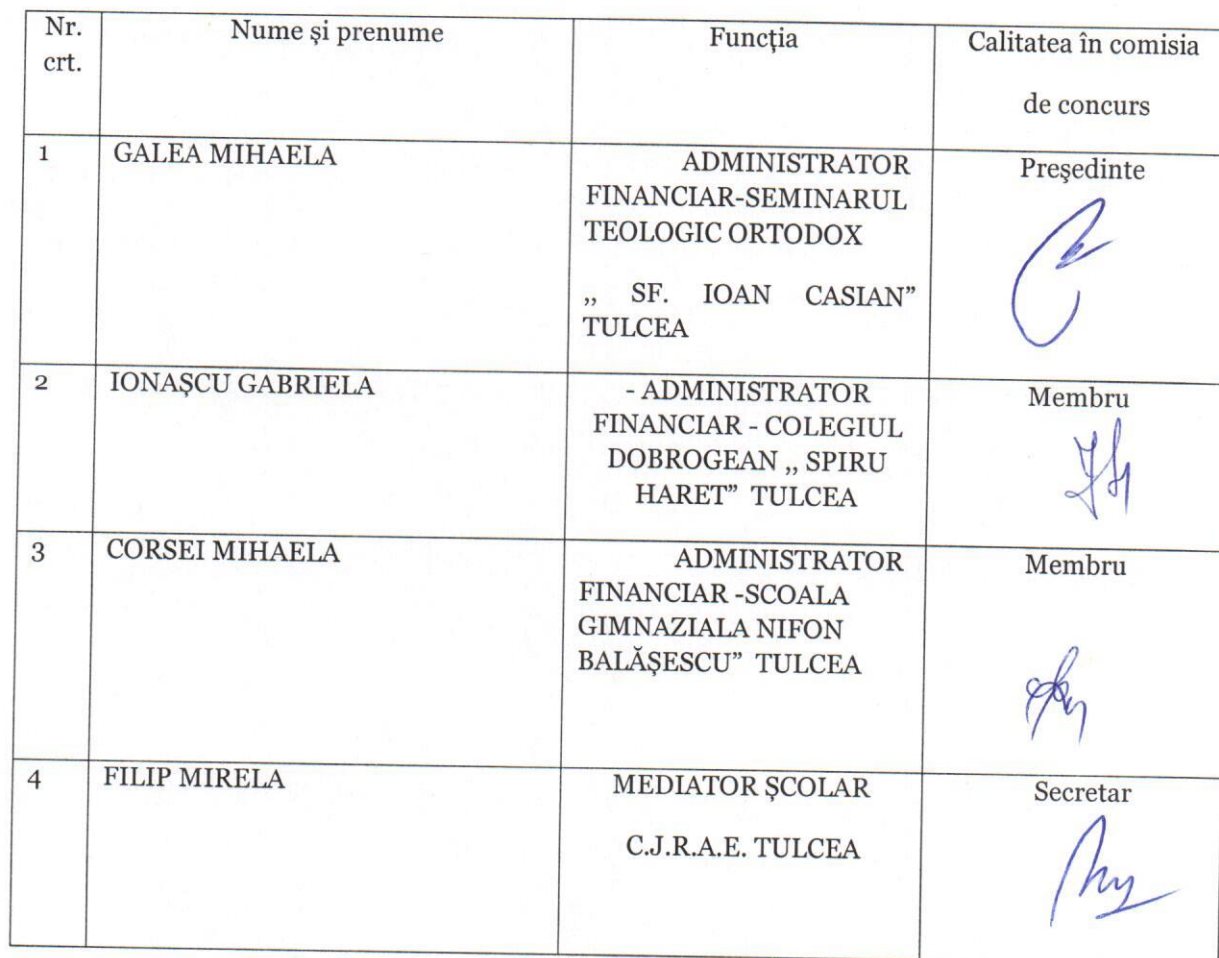 Nr. crt.
Nume și prenume
Funcția
Calitatea în comisia
de concurs
1
GALEA MIHAELA
ADMINISTRATOR
FINANCIAR-SEMINARUL
TEOLOGIC ORTODOX
,, SF. IOAN CASIAN”
TULCEA
Președinte
2
IONAȘCU GABRIELA
- ADMINISTRATOR
FINANCIAR - COLEGIUL
DOBROGEAN ,, SPIRU
HARET” TULCEA
Membru
3
CORSEI MIHAELA
ADMINISTRATOR
FINANCIAR -SCOALA
GIMNAZIALA NIFON
BALĂȘESCU” TULCEA
Membru
4
FILIP MIRELA
MEDIATOR ȘCOLAR
C.J.R.A.E. TULCEA
Secretar